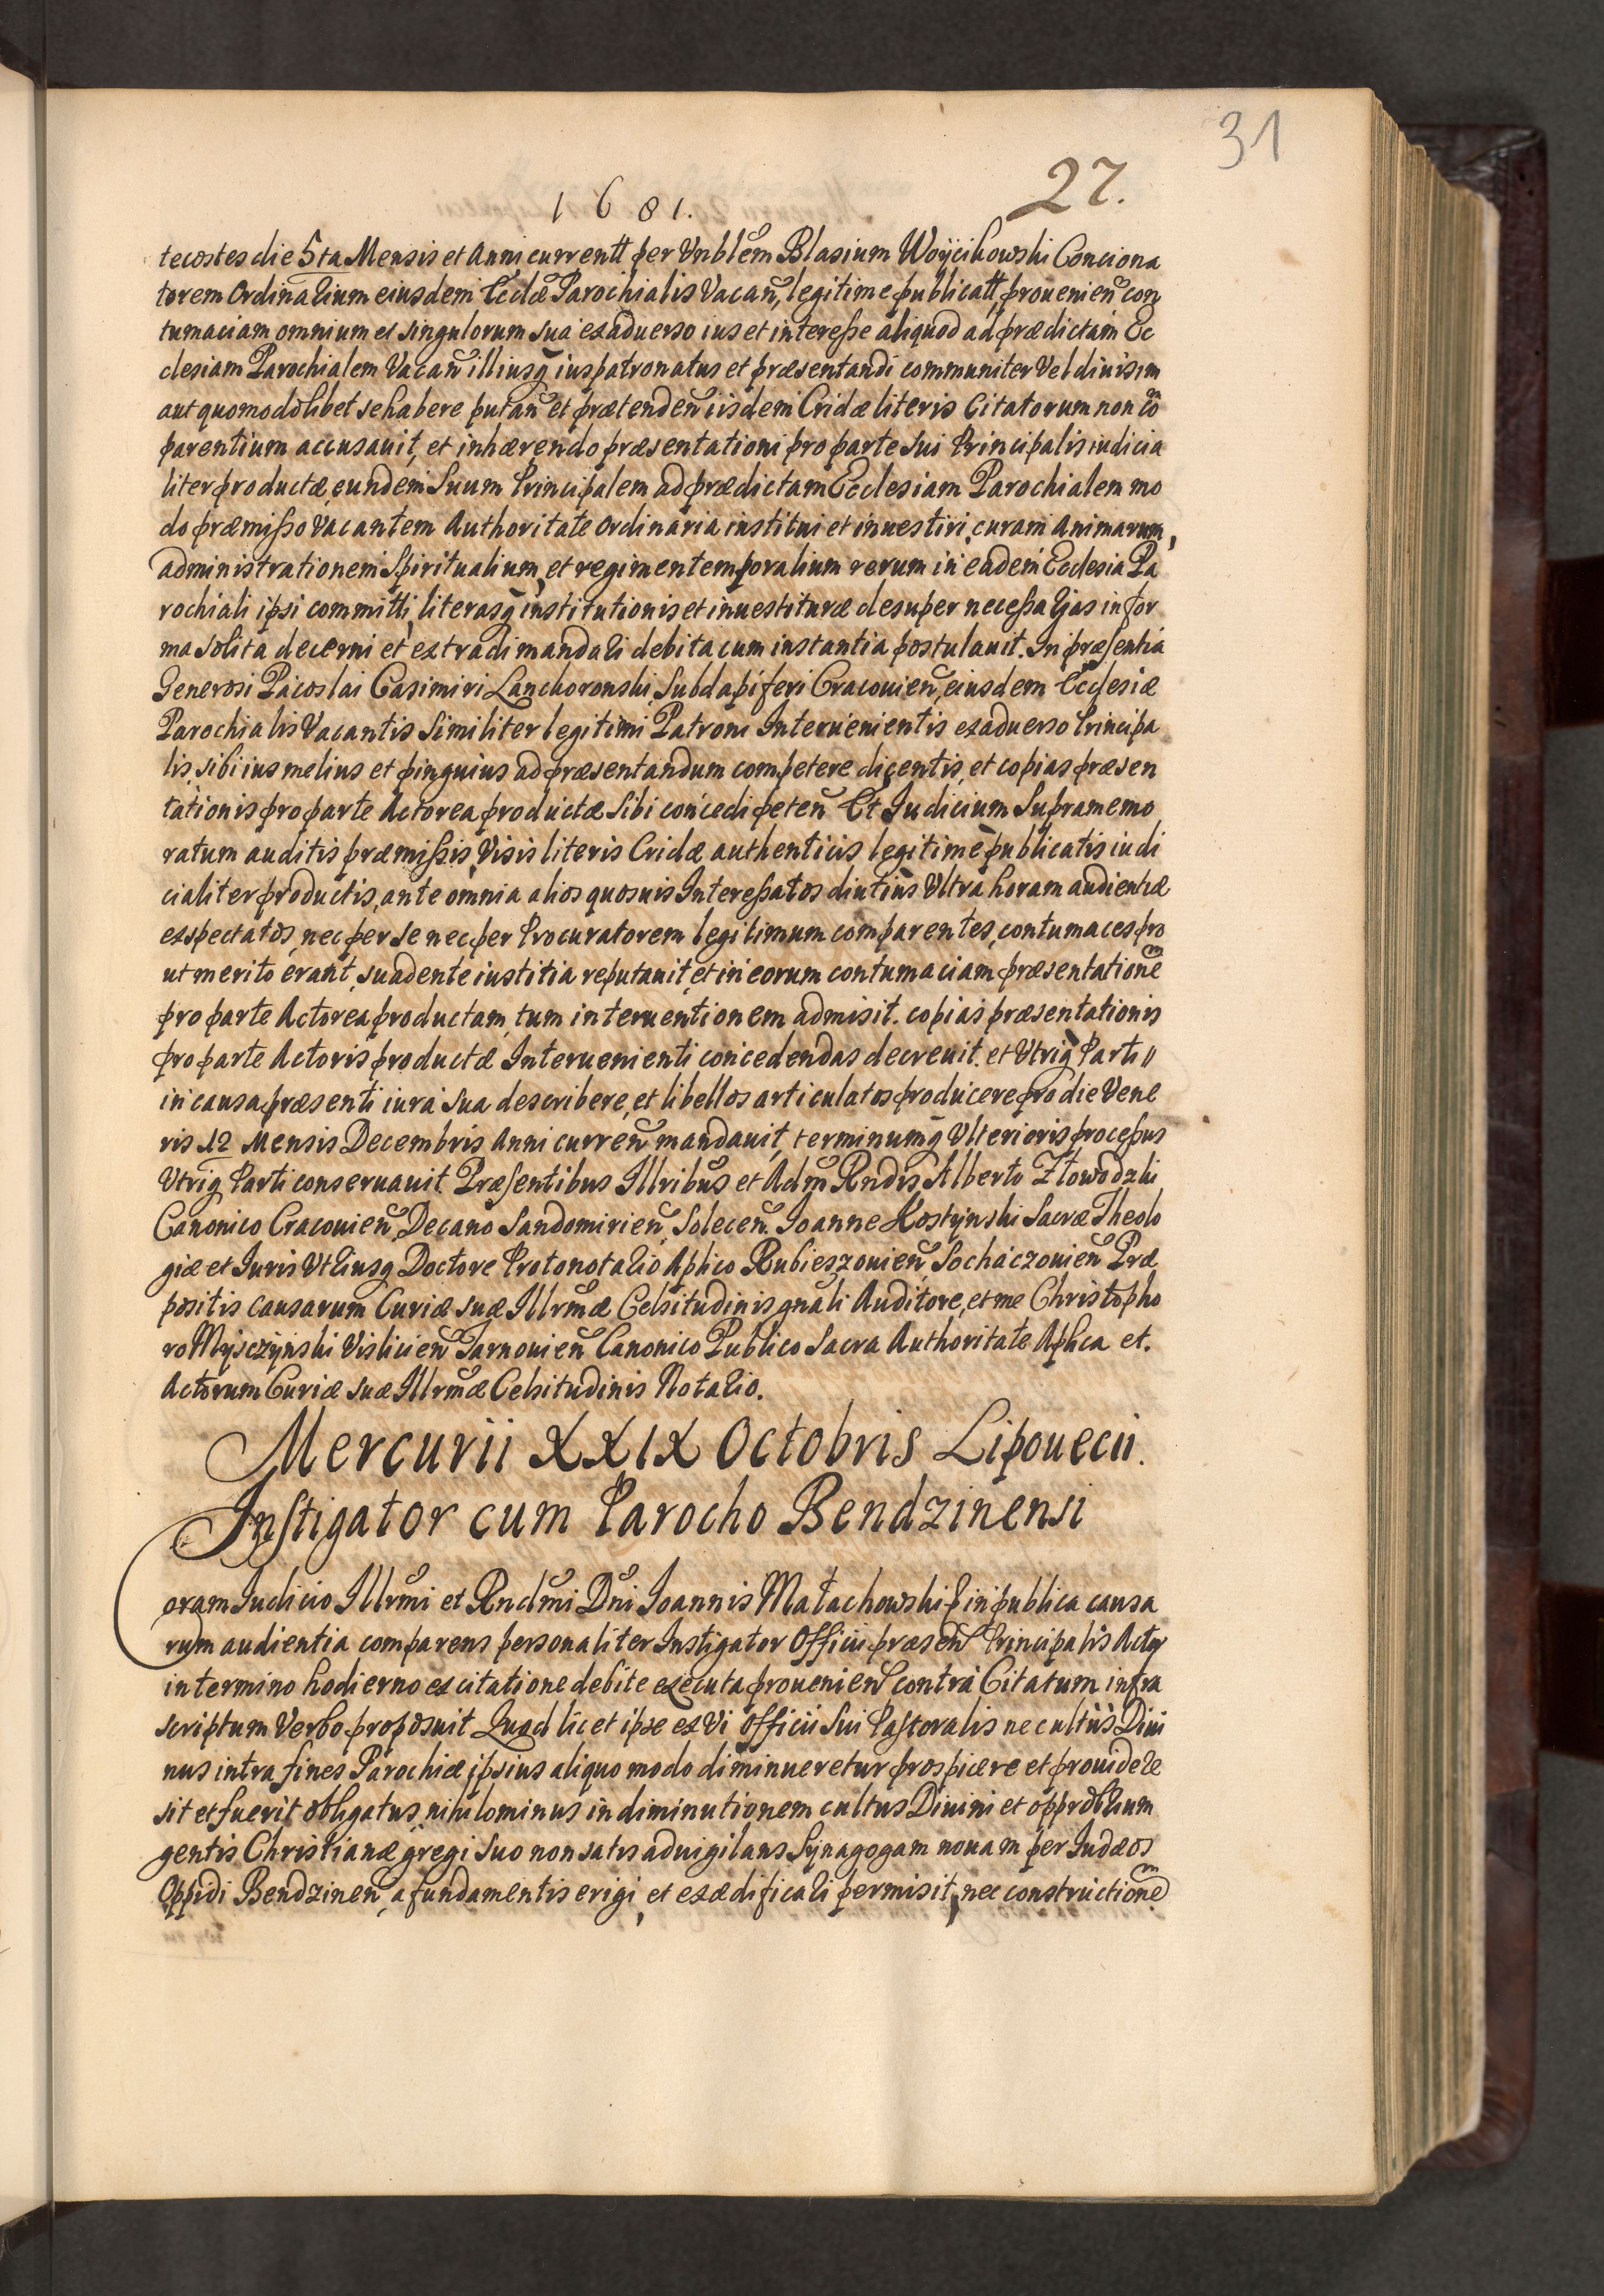 31
27.
1681.
tecostes die 5ta Mensis et Anni currentt per Vnblem Blasium Woÿcikowski Conciona
torem Ordinarium eiusdem Ecclæ Parochialis Vacan, legitime publicatt, prouenien con
tumaciam omnium et singulorum sua exaduerso ius et interesse aliquod ad prædictam Ec
clesiam Parochialem Vacan illiusq iuspatronatus et præsentandi communiter Vel diuisim
aut quomodolibet se habere putan et prætenden iisdem Cridæ literis Citatorum non co
parentium accusauit, et inhærendo præsentationi pro parte sui Principalis iudicia
liter productæ eundem Suum Principalem ad prædictam Ecclesiam Parochialem mo
do præmisso Vacantem Authoritate Ordinaria institui et inuestiri, curam Animarum,
administrationem Spiritualium, et regimen temporalium rerum in eadem Ecclesia Pa
rochiali ipsi committi, literasq institutionis et inuestituræ desuper necessarias in for
ma solita decerni et extradi mandari debita cum instantia postulauit. In præsentia
Generosi Pacoslai Casimiri Lanckoronski, Subdapiferi Cracouien, eiusdem Ecclesiæ
Parochialis Vacantis Similiter legitimi Patroni Interuenientis exaduerso Principa
lis, sibi ius melius et pinguius ad præsentandum competere dicentis, et copias præsen
tationis pro parte Actorea productæ Sibi concedi peten Et Iudicium Supramemo
ratum auditis præmissis, Visis literis Cridæ authenticis legitime publicatis iudi
cialiter productis, ante omnia alios quosuis Interessatos diutius Vltra horam audientiæ
exspectatos, nec per se nec per Procuratorem legitimum comparentes, contumaces pro
ut merito erant, suadente iustitia reputauit, et in eorum contumaciam præsentatione
pro parte Actorea productam, tum interuentionem admisit. copias præsentationis
pro parte Actoris productæ Interuenienti concedendas decreuit. et Vtriq Parti
in causa præsenti iura sua describere, et libellos articulatos producere pro die Vene
ris 12 Mensis Decembris Anni curren mandauit, terminumq Vlterioris processus
Vtriq Parti conseruauit. Præsentibus Illribus et Adm Rndis Alberto Złowodzki
Canonico Cracouien, Decano Sandomirien, Solecen. Ioanne Kostÿnski Sacræ Theolo
giæ et Iuris Vtriusq Doctore Protonotario Aplico Rubieszouien, Sochaczouien Præ
positis Causarum Curiæ suæ Illrmæ Celsitudinis gnali Auditore, et me Christopho
ro Mÿsczÿnski Vislicien Tarnouien Canonico Publico Sacra Authoritate Aplica et.
Actorum Curiæ suæ Illrmæ Celsitudinis Notario.
Mercurii XXIX Octobris Lipouecii.
Instigator cum Parocho Bendzinensi
Coram Iudicio Illrmi et Rndmi Dni Ioannis Małachowski E in publica causa
rum audientia comparens personaliter Instigator Officii præsen Principalis Actor
in termino hodierno ex citatione debite executa prouenien contra Citatum infra
scriptum Verbo proposuit Quod licet ipse ex Vi Officii Sui Pastoralis ne cultus Diui
nus intra fines Parochiæ ipsius aliquo modo diminueretur prospicere et prouidere
sit et fuerit obligatus, nihilominus in diminutionem cultus Diuini et opprobrium
gentis Christianæ gregi suo non satis aduigilans Synagogam nouam per Iudæos
Oppidi Bendzinen, a fundamentis erigi, et exædificari permisit, nec constructione